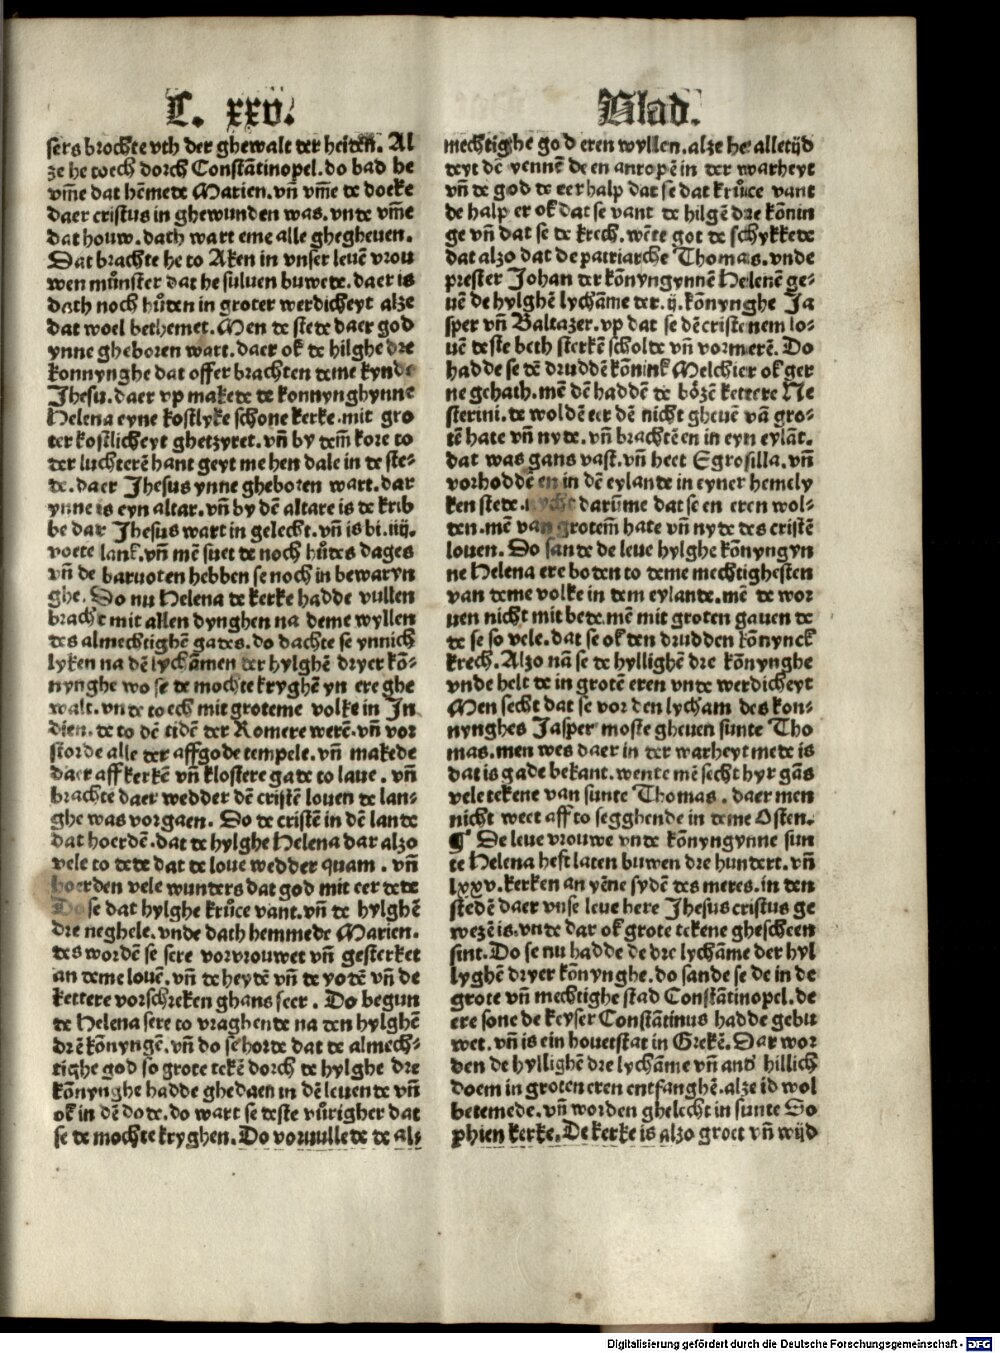 C. xxv. Blad.
sers brochte vth der ghewalt der heiden. Al
ze he toech dorch Constātinopel. do bad he
vm̄e dat hēmede Marien. vn̄ vm̄e de doeke
daer cristus in ghewunden was. vnde vm̄e
dat houw. dath wart eme alle ghegheuen.
Dat brachte he to Aken in vnser leuē vrou
wen mu̇nster dat he suluen buwete. daer is
dath noch hu̇den in groter werdicheyt alze
dat woel bethemet. Men de stede daer god
ynne gheboren wart. daer ok de hilghe dre
konnynghe dat offer brachten deme kynde
Jhesu. daer vp makede de konnynghynne
Helena eyne kostlyke schone kerke. mit gro
ter kostlicheyt ghetzyret. vn̄ by dem̄ kore to
der luchterē hant geyt me hen dale in de ste⸗
de. daer Jhesus ynne gheboren wart. dar
ynne is eyn altar. vn̄ by dē altare is de krib
be dar Jhesus wart in gelecht. vn̄ is bi. iiij.
voete lank. vn̄ mē suet de noch hu̇des dages
vn̄ de baruoten hebben se noch in bewaryn
ghe. Do nu Helena de kerke hadde vullen
bracht mit allen dynghen na deme wyllen
des almechtighē gades. do dachte se ynnich
lyken na dē lychāmen der hylghē dryer kō⸗
nynghe wo se de mochte kryghē yn ere ghe
walt. vnde toech mit groteme volke in In
dien. de to dē tidē der Romere werē. vn̄ vor
storde alle der affgode tempele. vn̄ makede
daer aff kerkē vn̄ klostere gade to laue. vn̄
brachte daer wedder dē cristē louen de lan⸗
ghe was vorgaen. Do de cristē in dē lande
dat hoerdē. dat de hylghe Helena dar alzo
vele to dede dat de loue wedder quam. vn̄
hoerden vele wunders dat god mit eer dede
Do se dat hylghe kru̇ce vant. vn̄ de hylghē
dre neghele. vnde dath hemmede Marien.
des wordē se sere vorvrouwet vn̄ gesterket
an deme louē. vn̄ de heydē vn̄ de yodē vn̄ de
kettere vorschreken ghans seer. Do begun
de Helena sere to vraghende na den hylghē
drē kōnyngē. vn̄ do se horde dat de almech⸗
tighe god so grote tekē dorch de hylghe dre
kōnynghe hadde ghedaen in dē leuende vn̄
ok in dē dode. do wart se deste vu̇righer dat
se de mochte kryghen. Do voruullede de al⸗
mechtighe god eren wyllen. alze he alletijd
deyt dē yennē de en anropē in der warheyt
vn̄ de god de eer halp dat se dat kru̇ce vant
de halp er ok dat se vant de hilgē dre kōnin
ge vn̄ dat se de krech. wēte got de schykkede
dat alzo dat de patriarche Thomas. vnde
prester Johan der kōnyngynnē Helenē ge⸗
uē de hylghē lychāme der. ij. kōnynghe Ja
sper vn̄ Baltazer. vp dat se dē cristenem lo⸗
uē deste beth sterkē scholde vn̄ vormerē. Do
hadde se dē druddē kōnink Melchier ok ger
ne gehath. mē dē haddē de bözē kettere Ne
sterini. de woldē eer dē nicht gheuē vā gro⸗
tē hate vn̄ nyde. vn̄ brachtē en in eyn eylāt.
dat was gans vast. vn̄ heet Egrosilla. vn̄
vorhoddē en in dē eylande in eyner hemely
ken stede. nycht darūme dat se en eren wol⸗
den. mē van grotem̄ hate vn̄ nyde des cristē
louen. Do sande de leue hylghe kōnyngyn
ne Helena ere boden to deme mechtighesten
van deme volke in dem eylande. mē de wor
uen nicht mit bede. mē mit groten gauen de
de se so vele. dat se ok den drudden kōnynck
krech. Alzo nā se de hyllighē dre kōnynghe
vnde helt de in grotē eren vnde werdicheyt
Men secht dat se vor den lycham des kon⸗
nynghes Jasper moste gheuen sunte Tho
mas. men wes daer in der warheyt mede is
dat is gade bekant. wente mē secht hyr gās
vele tekene van sunte Thomas. daer men
nicht weet aff to segghende in deme Osten.
¶ De leue vrouwe vnde kōnyngynne sun
te Helena heft laten buwen dre hundert. vn̄
lxxv. kerken an yēne sydē des meres. in den
stedē daer vnse leue here Jhesus cristus ge
wezē is. vnde dar ok grote tekene ghescheen
sint. Do se nu hadde de dre lychāme der hyl
lyghē dryer kōnynghe. do sande se de in de
grote vn̄ mechtighe stad Constātinopel. de
ere sone de keyser Constātinus hadde gebu
wet. vn̄ is ein houetstat in Grekē. Dar wor
den de hyllighē dre lychāme vn̄ and̕ hillich
doem in groten eren entfanghē. alze id wol
betemede. vn̄ worden ghelecht in sunte So
phien kerke. De kerke is alzo groet vn̄ wijd
Digitalisierung gefördert durch die Deutsche Forschungsgemeinschaft - DFG